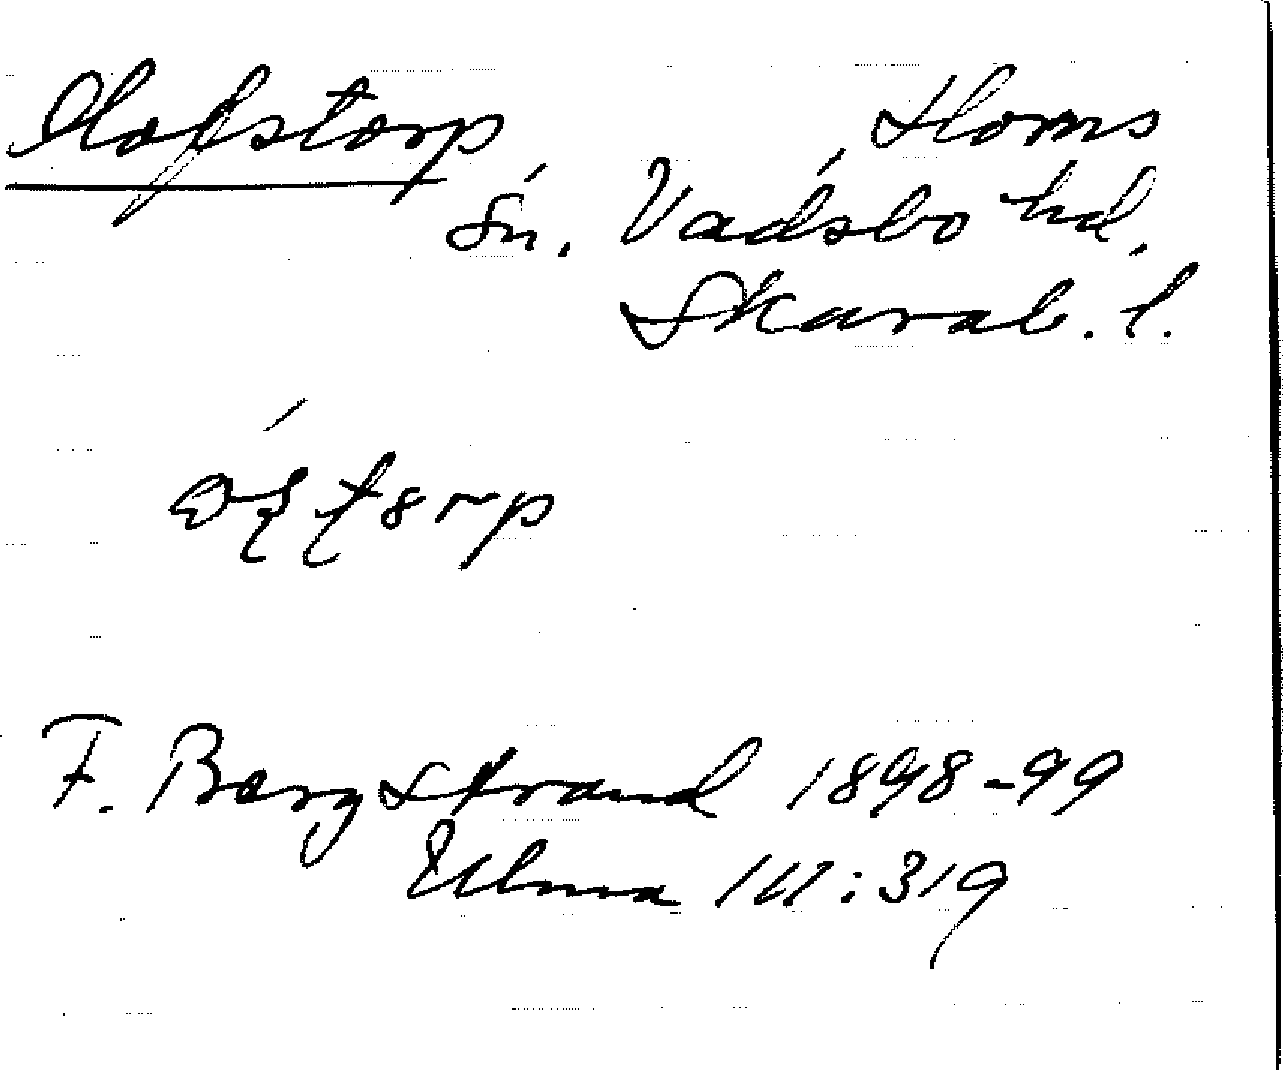 Olofstorp Horns
Sn. Vadsbo hd.
Skarab. l.
F. Bergstrand 1898-99
Ulma 111:319